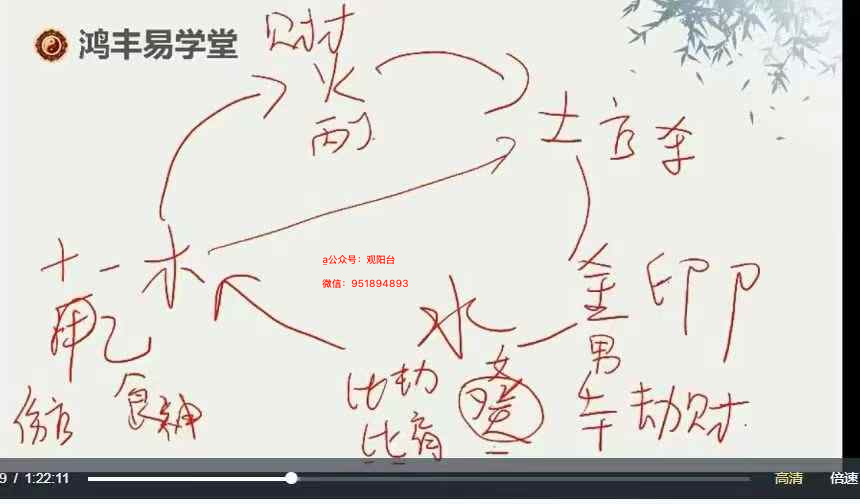 鸿丰易学堂
财才
火
丙丁
土 官 杀
十一木
甲乙
伤官 食神
@公众号：观阳台
微信：951894893
水
比劫
比肩
女
癸
金 印 卩
男
劫财
9 / 1:22:11
高清
倍速